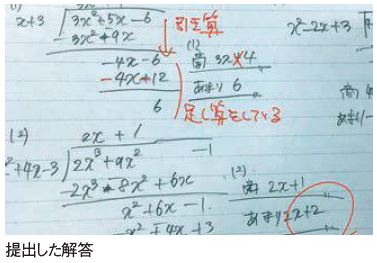 (1)
x+3 ) 3x²+5x-6
-3x²+9x
-4x-6
-4x-12
6
引き算
(1)
商 3x-4
あまり 6
足し算をしている
x²-2x+3
商
あまり
(2)
2x+1
x²+4x-3 ) 2x³+9x² -1
-2x³-8x²+6x
x²+6x-1
-x²+4x+3
(2)
商 2x+1
あまり 2x+2
提出した解答